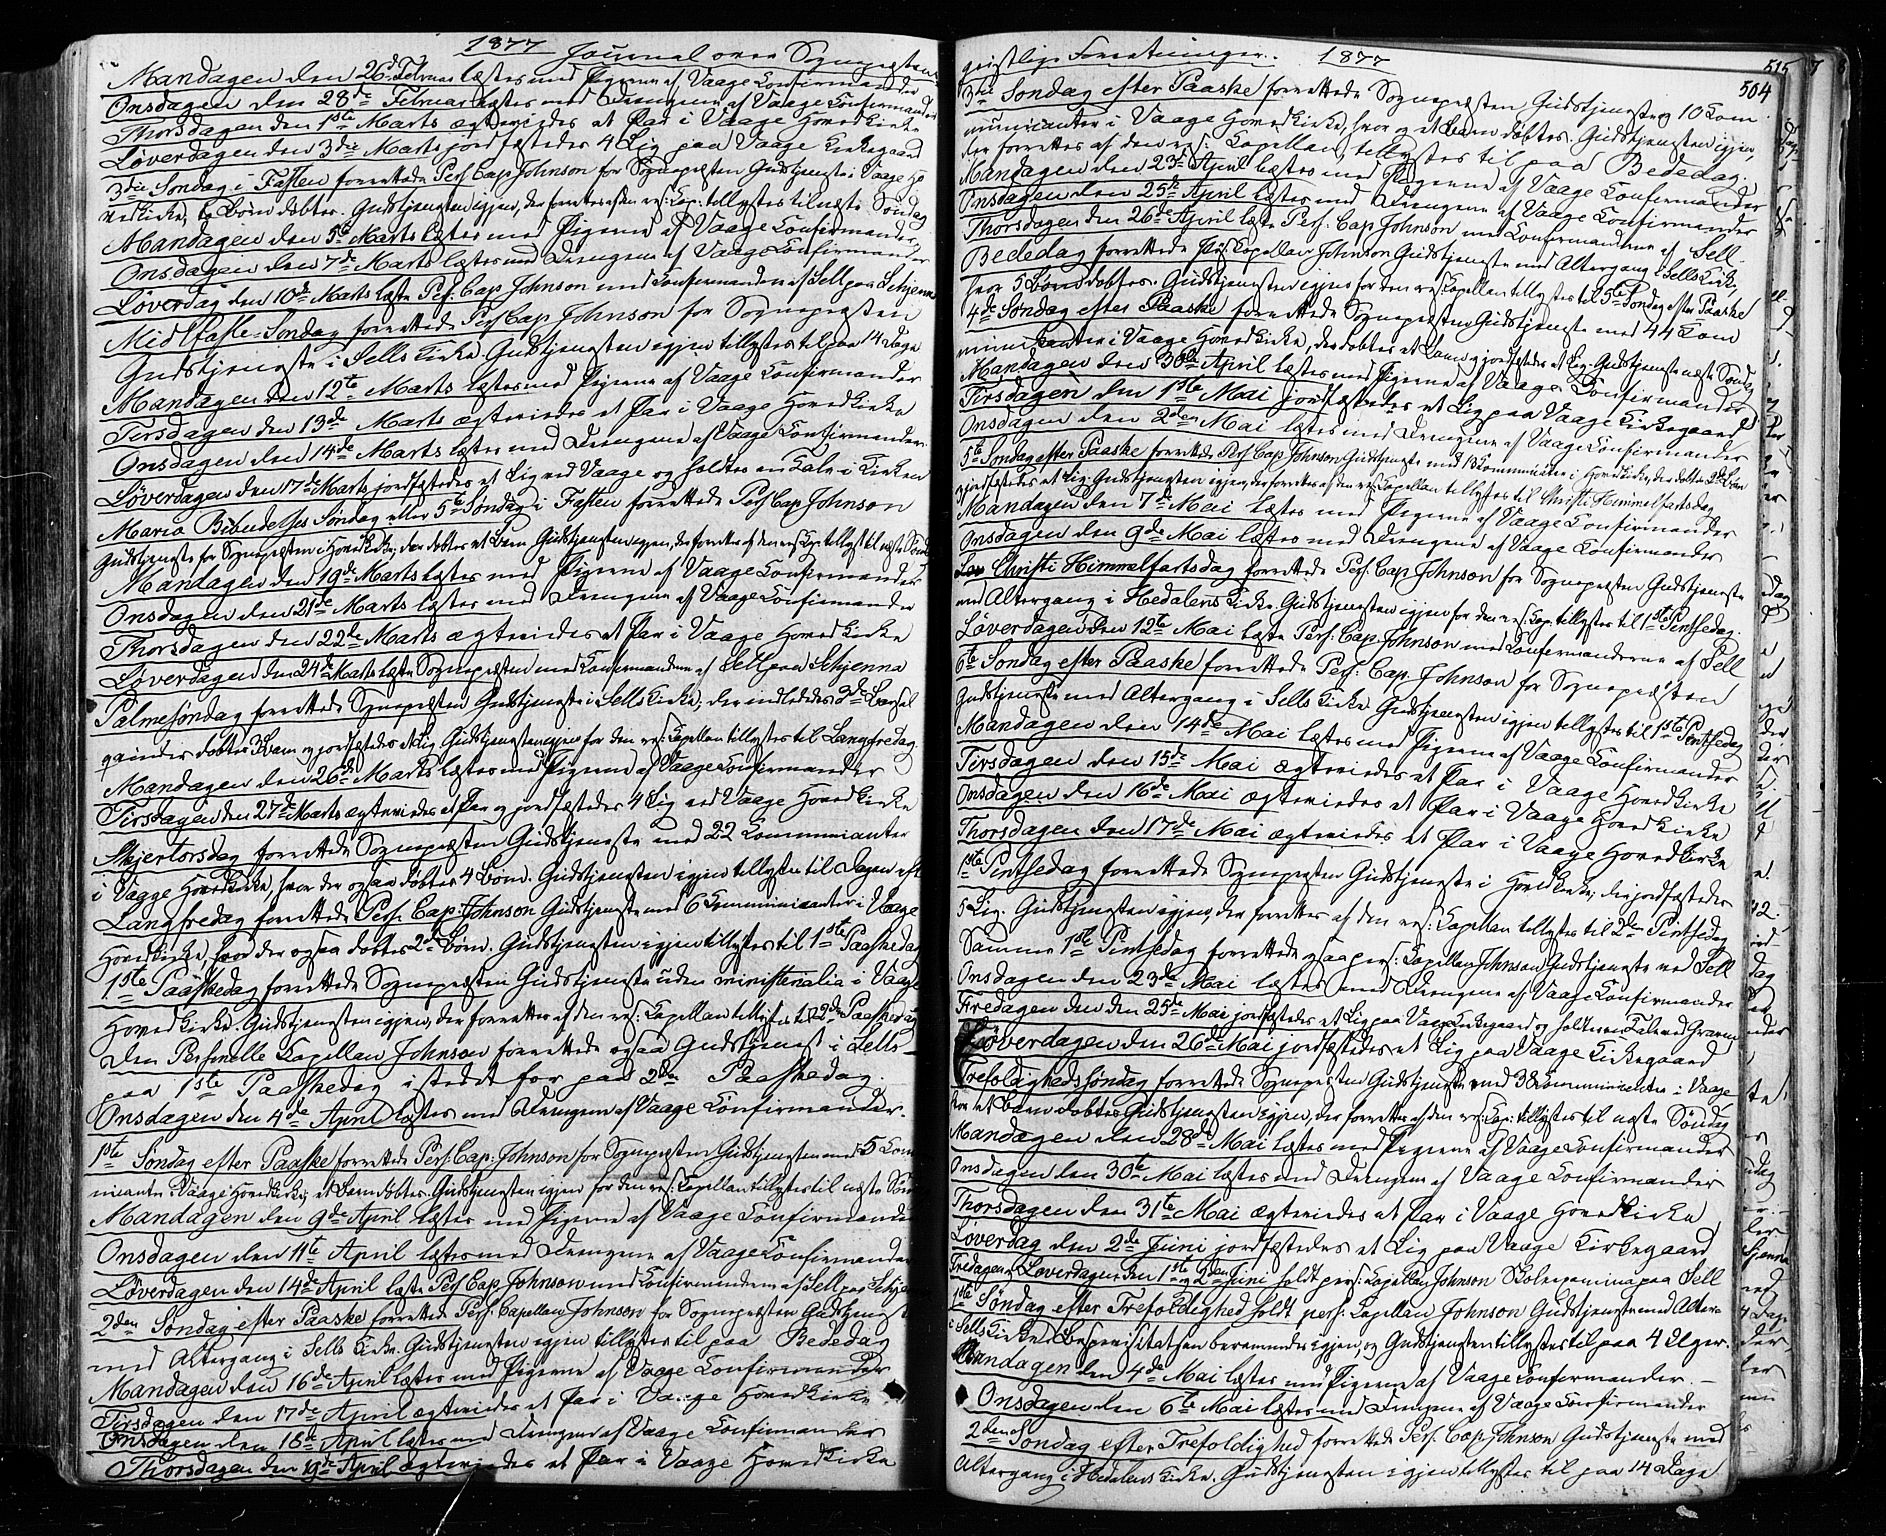 1877 Journal over Sognepræstens
Mandagen den 26de Februar læstes med Pigerne af Vaage Confirmander
Onsdagen den 28de Februar læstes med Drengene af Vaage Confirmander
Thorsdagen den 1ste Marts ægteviedes et Par i Vaage Hovedkirke
Løverdagen den 3die Marts jordfæstedes 4 Lig paa Vaage Kirkegaard
3die Søndag i Fasten forrettede Pers. Cap. Johnson for Sognepræsten Gudstjeneste i Vaage Ho
vedkirke, Børn døbtes. Gudstjenesten igjen, der forrettes af den res: Cap. tillystes til næste Søndag
Mandagen den 5te Marts læstes med Pigerne af Vaage Confirmander
Onsdagen den 7de Marts læstes med Drengene af Vaage Confirmander
Løverdag den 10de Marts læste Pers: Cap. Johnson med Confirmanderne af Sell paa Schjenna
Midtfaste-Søndag forrettede Pers. Cap. Johnson for Sognepræsten
Gudstjeneste i Sells Kirke. Gudstjenesten igjen tillystes til paa 14 Dage
Mandagen den 12te Marts læstes med Pigerne af Vaage Confirmander
Tirsdagen den 13de Marts ægteviedes et Par i Vaage Hovedkirke
Onsdagen den 14de Marts læstes med Drengene af Vaage Confirmander
Løverdagen den 17de Marts jordfæstedes et Lig ved Vaage og holdtes en Tale i Kirken
Maria Bebudelses Søndag eller 5te Søndag i Fasten forrettede Pers. Cap. Johnson
Gudstjeneste for Sognepræsten i Hovedkirke, der døbtes et Barn. Gudstjenesten igjen, der forrettes af den res. Cap. tillystes til næste Sønd.
Mandagen den 19de Marts læstes med Pigerne af Vaage Confirmander
Onsdagen den 21de Marts læstes med Drengene af Vaage Confirmander
Thorsdagen den 22de Marts ægteviedes et Par i Vaage Hovedkirke
Løverdagen den 24de Marts læste Sognepræsten med Confirmanderne af Sell paa Schjenna
Palmesøndag forrettede Sognepræsten Gudstjeneste i Sells Kirke, der indlededes 3de Barsel
qvinder døbtes 3 Barn og jordfæstedes et Lig. Gudstjenesten igjen for den res: Capellan tillystes til Langfredag
Mandagen den 26de Marts læstes med Pigerne af Vaage Confirmander
Tirsdagen den 27de Marts ægteviedes et Par og jordfæstedes 4 Lig ved Vaage Hovedkirke
Skjertorsdag forrettede Sognepræsten Gudstjeneste med 22 Communicanter
i Vaage Hovedkirke, hvor der ogsaa døbtes 4 Børn. Gudstjenesten igjen tillystes til Dagen eft.
Langfredag forrettede Pers. Cap: Johnson Gudstjeneste med 6 Communicanter i Vaage
Hovedkirke, hvor der ogsaa døbtes 2de Børn. Gudstjenesten igjen tillystes til 1ste Paaskedag
1ste Paaskedag forrettede Sognepræsten Gudstjeneste uden ministerialia i Vaage
Hovedkirke. Gudstjenesten igjen, der forrettes af den res: Capellan tillystes til 2den Paaskedag
Den Personelle Capellan Johnson forrettede ogsaa Gudstjenest i Sells
paa 1ste Paaskedag istedet for paa 2den Paaskedag.
Onsdagen den 4de April læstes med Drengene af Vaage Confirmander.
1ste Søndag efter Paaske forrettede Pers: Cap: Johnson for Sognepræsten Gudstjenesten med 5 Com
nicanter i Vaage Hovedkirke, et Barn døbtes. Gudstjenesten igjen for den res: Capellan tillystes til næste Søn
Mandagen den 9de April læstes med Pigerne af Vaage Confirmander
Onsdagen den 11te April læstes med Drengene af Vaage Confirmander
Løverdagen den 14de April læste Pers. Cap. Johnson med Confirmanderne af Sell paa Schje
2den Søndag efter Paaske forrettede Pers. Capellan Johnson for Sognepræsten Gudstjeneste
med Altergang i Sells Kirke. Gudstjenesten igjen tillystes til paa Bededag
Mandagen den 16de April læstes med Pigerne af Vaage Confirmander
Tirsdagen den 17de April ægteviedes et Par i Vaage Hovedkirke
Onsdagen den 18de April læstes med Drengene af Vaage Confirmander
Thorsdagen den 19de April ægteviedes et Par i Vaage Hovedkirke
geistlige Forretninger. 1877
515
504
3die Søndag efter Paaske forrettede Sognepræsten Gudstjeneste 10 Com
municanter i Vaage Hovedkirke, hvor og et Barn døbtes. Gudstjenesten igjen,
der forrettes af den res: Capellan, tillystes til paa Bededag.
Mandagen den 23de April læstes med Pigerne af Vaage Confirmander
Onsdagen den 25de April læstes med Drengene af Vaage Confirmander
Thorsdagen den 26de April læste Pers. Cap. Johnson med Confirmanderne af Sell.
Bededag forrettede Pers: Capellan Johnson Gudstjeneste med Altergang i Sells Kirke,
hvor 5 Børn døbtes. Gudstjenesten igjen for den res: Capellan tillystes til 5te Søndag efter Paaske
4de Søndag efter Paaske forrettede Sognepræsten Gudstjeneste med 44 Com
municanter i Vaage Hovedkirke, der døbtes et Barn og jordfæstedes et Lig. Gudstjeneste næste Søndag
Mandagen den 30te April læstes med Pigerne af Vaage Confirmander
Tirsdagen den 1ste Mai jordfæstedes et Lig paa Vaage Kirkegaard
Onsdagen den 2den Mai læstes med Drengene af Vaage Confirmander
5te Søndag efter Paaske forrettede Pers. Cap. Johnson Gudstjeneste med 13 Communicanter i Hovedkirke, der døbtes 2de Børn
og jordfæstedes et Lig. Gudstjenesten igjen, der forrettes af den res: Capellan tillystes til Christi Himmelfartsdag
Mandagen den 7de Mai læstes med Pigerne af Vaage Confirmander
Onsdagen den 9de Mai læstes med Drengene af Vaage Confirmander
Christi Himmelfartsdag forrettede Pers. Cap. Johnson for Sognepræsten Gudstjeneste
med Altergang i Hedalens Kirke. Gudstjenesten igjen for den res: Cap: tillystes til 1ste Pintsedag.
Løverdagen den 12te Mai læste Pers. Cap. Johnson med Confirmanderne af Sell
6te Søndag efter Paaske forrettede Pers. Cap. Johnson for Sognepræsten
Gudstjeneste med Altergang i Sells Kirke. Gudstjenesten igjen tillystes til 1ste Pintsedag
Mandagen den 14de Mai læstes med Pigerne af Vaage Confirmander
Tirsdagen den 15de Mai ægteviedes et Par i Vaage Hovedkirke
Onsdagen den 16de Mai ægteviedes et Par i Vaage Hovedkirke
Thorsdagen den 17de Mai ægteviedes et Par i Vaage Hovedkirke
1ste Pintsedag forrettede Sognepræsten Gudstjeneste i Hovedkirke, der jordfæstedes
5 Lig. Gudstjenesten igjen, der forrettes af den res: Capellan tillystes til 2den Pintsedag
Samme 1ste Pintsedag forrettede ogsaa pers: Capellan Johnson Gudstjeneste ved Sell
Onsdagen den 23de Mai læstes med Drengene af Vaage Confirmander
Fredagen den 25de Mai jordfæstedes et Lig paa Vaage Kirkegaard og holdtes en Tale ved Graven
Løverdagen den 26de Mai jordfæstedes et Lig paa Vaage Kirkegaard
Trefoldighedssøndag forrettede Sognepræsten Gudstjeneste med 38 Communicanter i Vaage
hvor et Barn døbtes. Gudstjenesten igjen, der forrettes af den res: Cap: tillystes til næste Søndag
Mandagen den 28de Mai læstes med Pigerne af Vaage Confirmander
Onsdagen den 30te Mai læstes med Drengene af Vaage Confirmander
Thorsdagen den 31te Mai ægteviedes et Par i Vaage Hovedkirke
Løverdag den 2de Juni jordfæstedes et Lig paa Vaage Kirkegaard
Fredagen og Løverdagen den 1ste og 2den Juni holdt pers: Capellan Johnson Skoleexamina paa Sell
1ste Søndag efter Trefoldighed holdt pers: Capellan Johnson Gudstjeneste med Alterg
i Sells Kirke. Bispevisitatsen berammedes igjen, og Gudstjenesten tillystes til paa 4 Uger.
Mandagen den 4de Mai læstes med Pigerne af Vaage Confirmander. –
Onsdagen den 6te Mai læstes med Drengene af Vaage Confirmander
2den Søndag efter Trefoldighed forrettede Pers. Cap. Johnson Gudstjeneste med
Altergang i Hedalens Kirke. Gudstjenesten igjen tillystes til paa 14 Dage